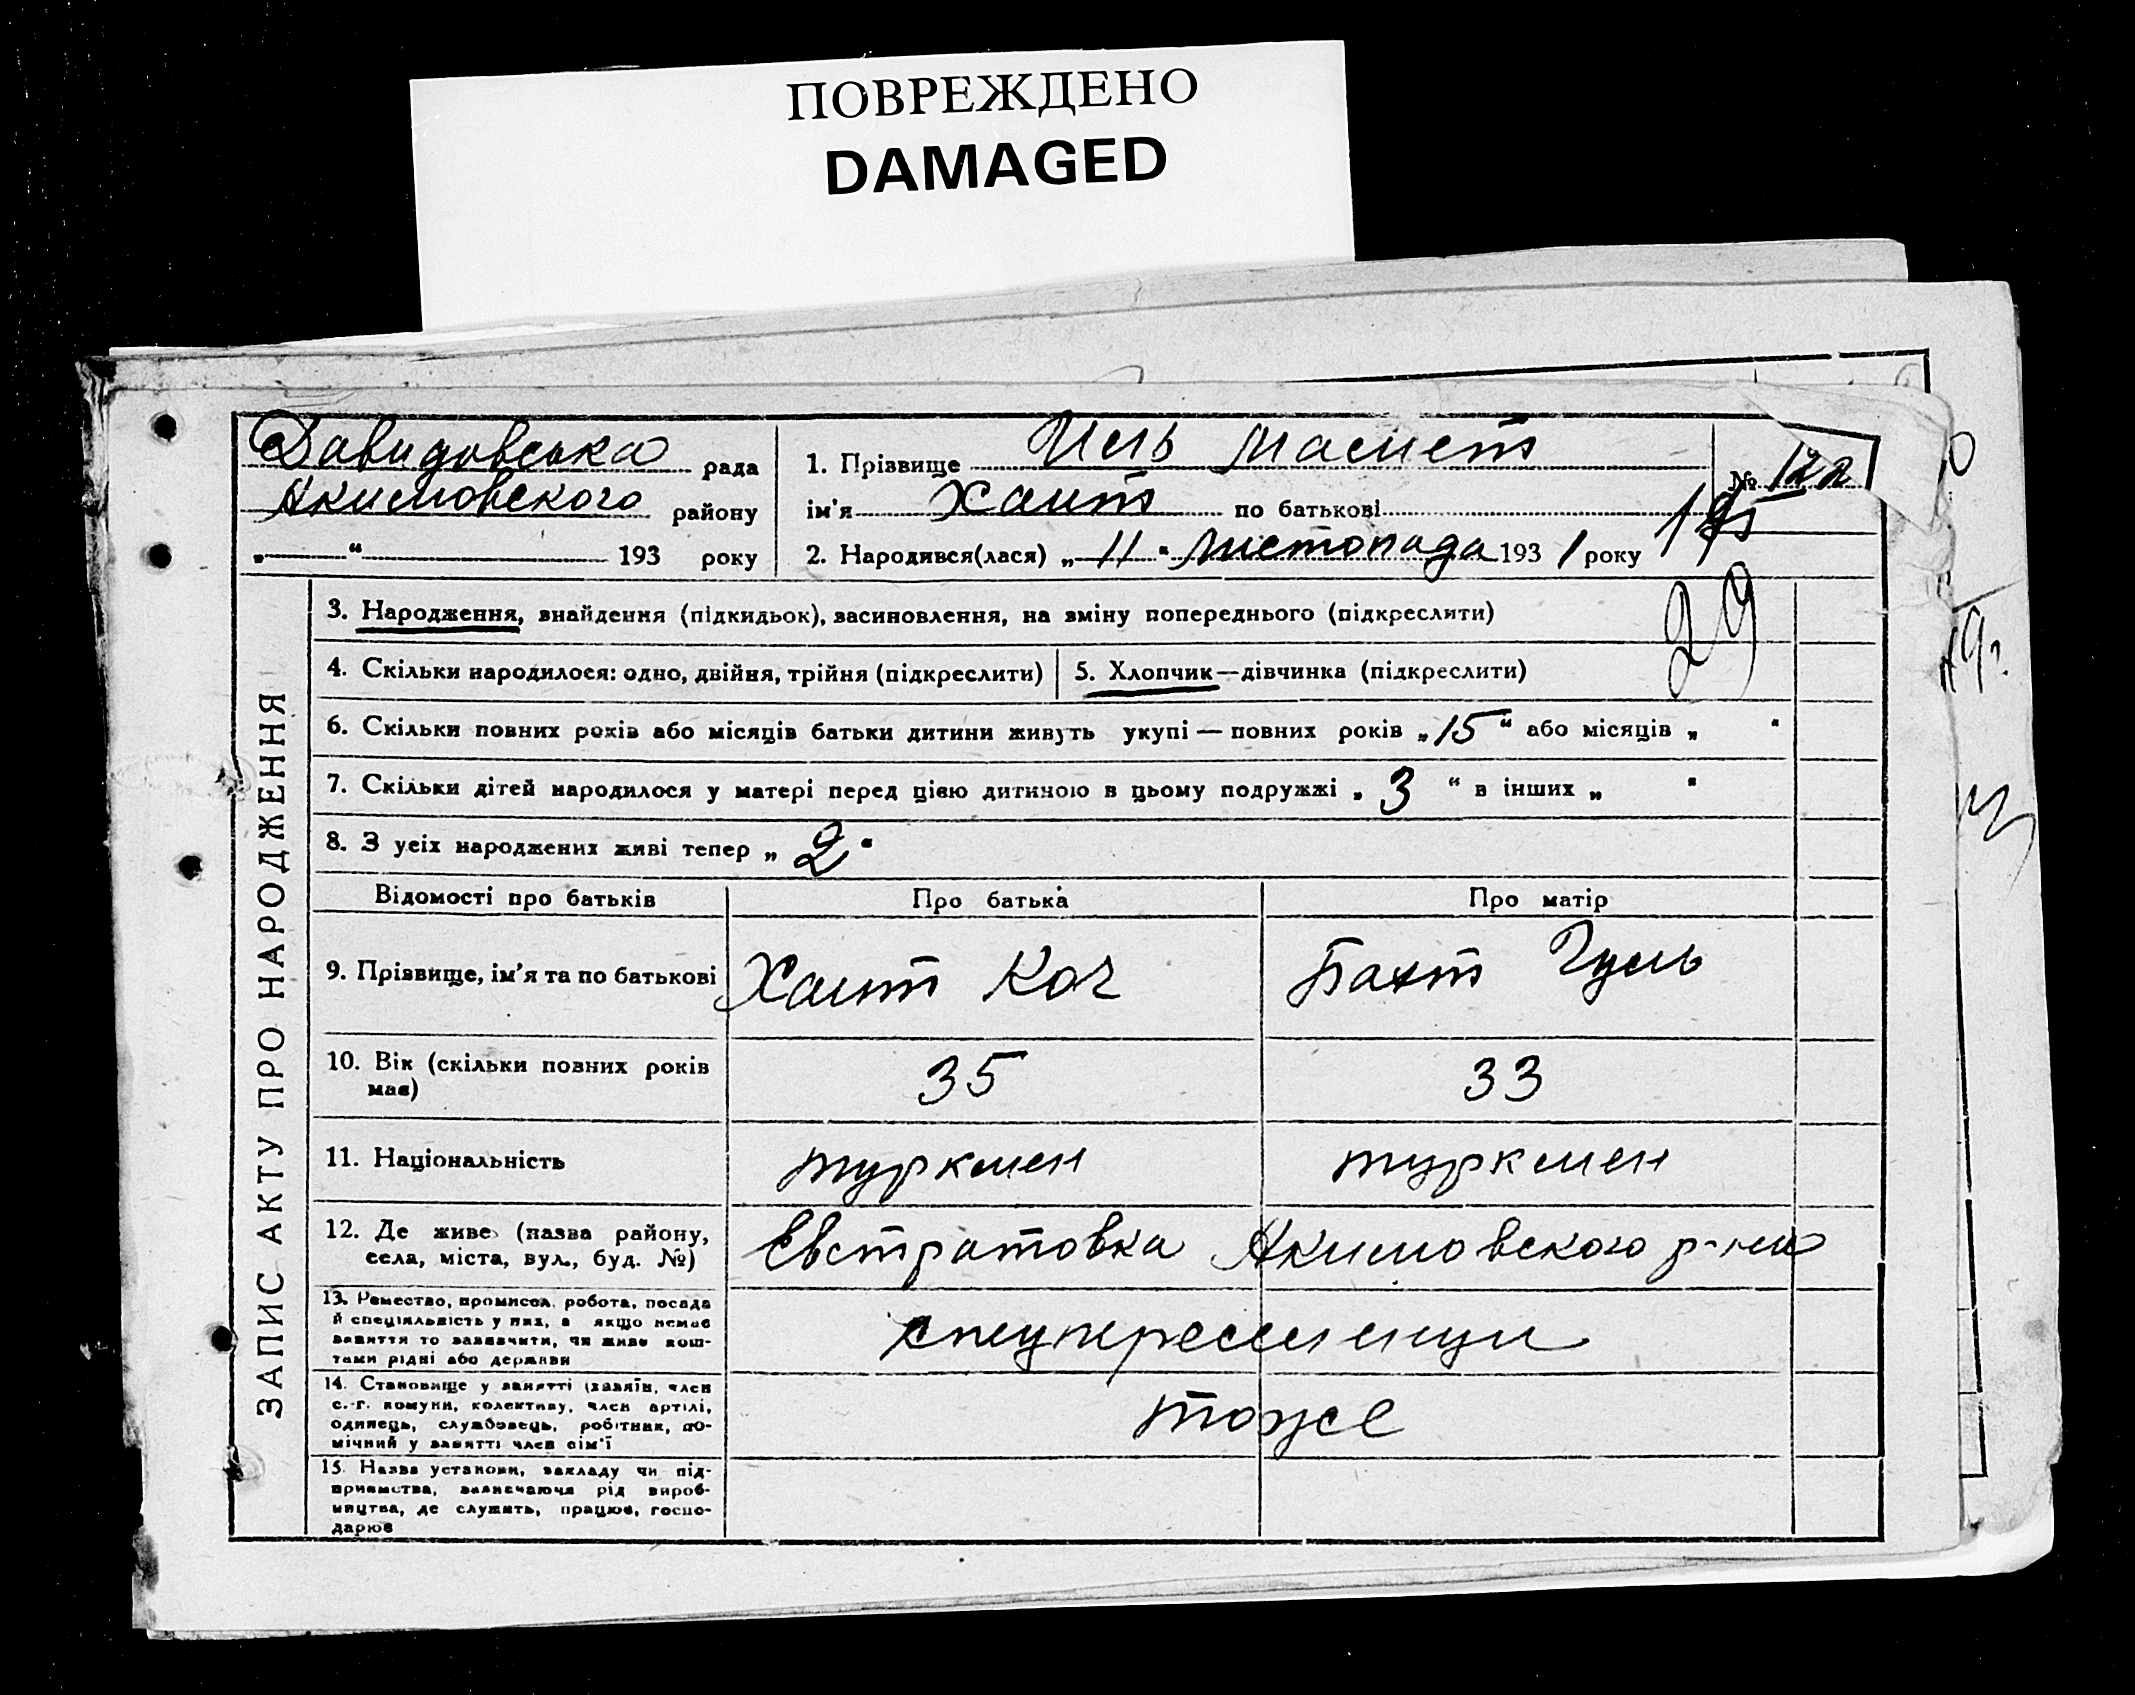 ПОВРЕЖДЕНО
DAMAGED
Давидовська рада
Акимовского району
„ “ 193 року
1. Прізвище Иль Мамет
ім'я Хаит по батькові
2. Народився(лася) „ 11 “ Листопада 193 1 року
№ 122
195
29
ЗАПИС АКТУ ПРО НАРОДЖЕННЯ
3. Народження, внайдення (підкидьок), засиновлення, на зміну попереднього (підкреслити)
4. Скільки народилося: одно, двійня, трійня (підкреслити)
5. Хлопчик—дівчинка (підкреслити)
6. Скільки повних років або місяців батьки дитини живуть укупі — повних років „ 15 “ або місяців „ “
7. Скільки дітей народилося у матері перед цією дитиною в цьому подружжі „ 3 “ в інших „ “
8. З усіх народжених живі тепер „ 2 “
Відомості про батьків Про батька Про матір
9. Прізвище, ім'я та по батькові Хаит Коч Бахт Гуль
10. Вік (скільки повних років має) 35 33
11. Національність туркмен туркмен
12. Де живе (назва району, села, міста, вул., буд. №) Евстратовка Акимовского р-на
13. Ремество, промисел, робота, посада
й спеціяльність у них, а якщо немає
заняття то зазначити, чи живе кош-
тами рідні або держави
спецпереселенци
14. Становище у занятті (хазяїн, член
с.-г. комуни, колективу, член артілі,
одинець, службовець, робітник, по-
мічний у занятті член сім'ї
тоже
15. Назва установи, закладу чи під-
приємства, зазначаючи рід вироб-
ництва, де служить, працює, госпо-
дарює